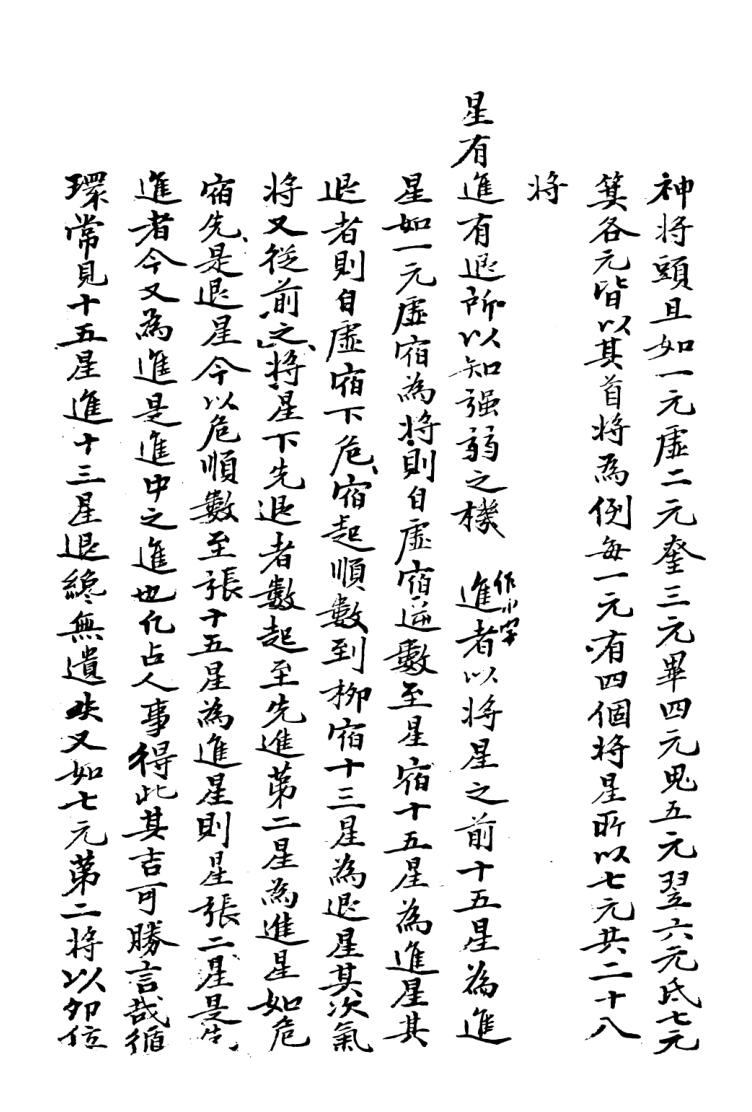 神将頭且如一元虛二元奎三元畢四元鬼五元翌六元氐七元
箕各元皆以其首将為例每一元有四個将星所以七元共二十八
将
星有進有退所以知强弱之機 進者以将星之前十五星為進
星如一元虛宿為将則自虛宿逆數至星宿十五星為進星其
退者則自虛宿下危宿起順數到柳宿十三星為退星其次氣
将又從前之将星下先退者數起至先進第二星為進星如危
宿先是退星今以危順數至張十五星為進星則星張二星是先
進者今又為進是進中之進也凡占人事得此其吉可勝言哉循
環常見十五星進十三星退纔無遺失又如七元第二将以卯位